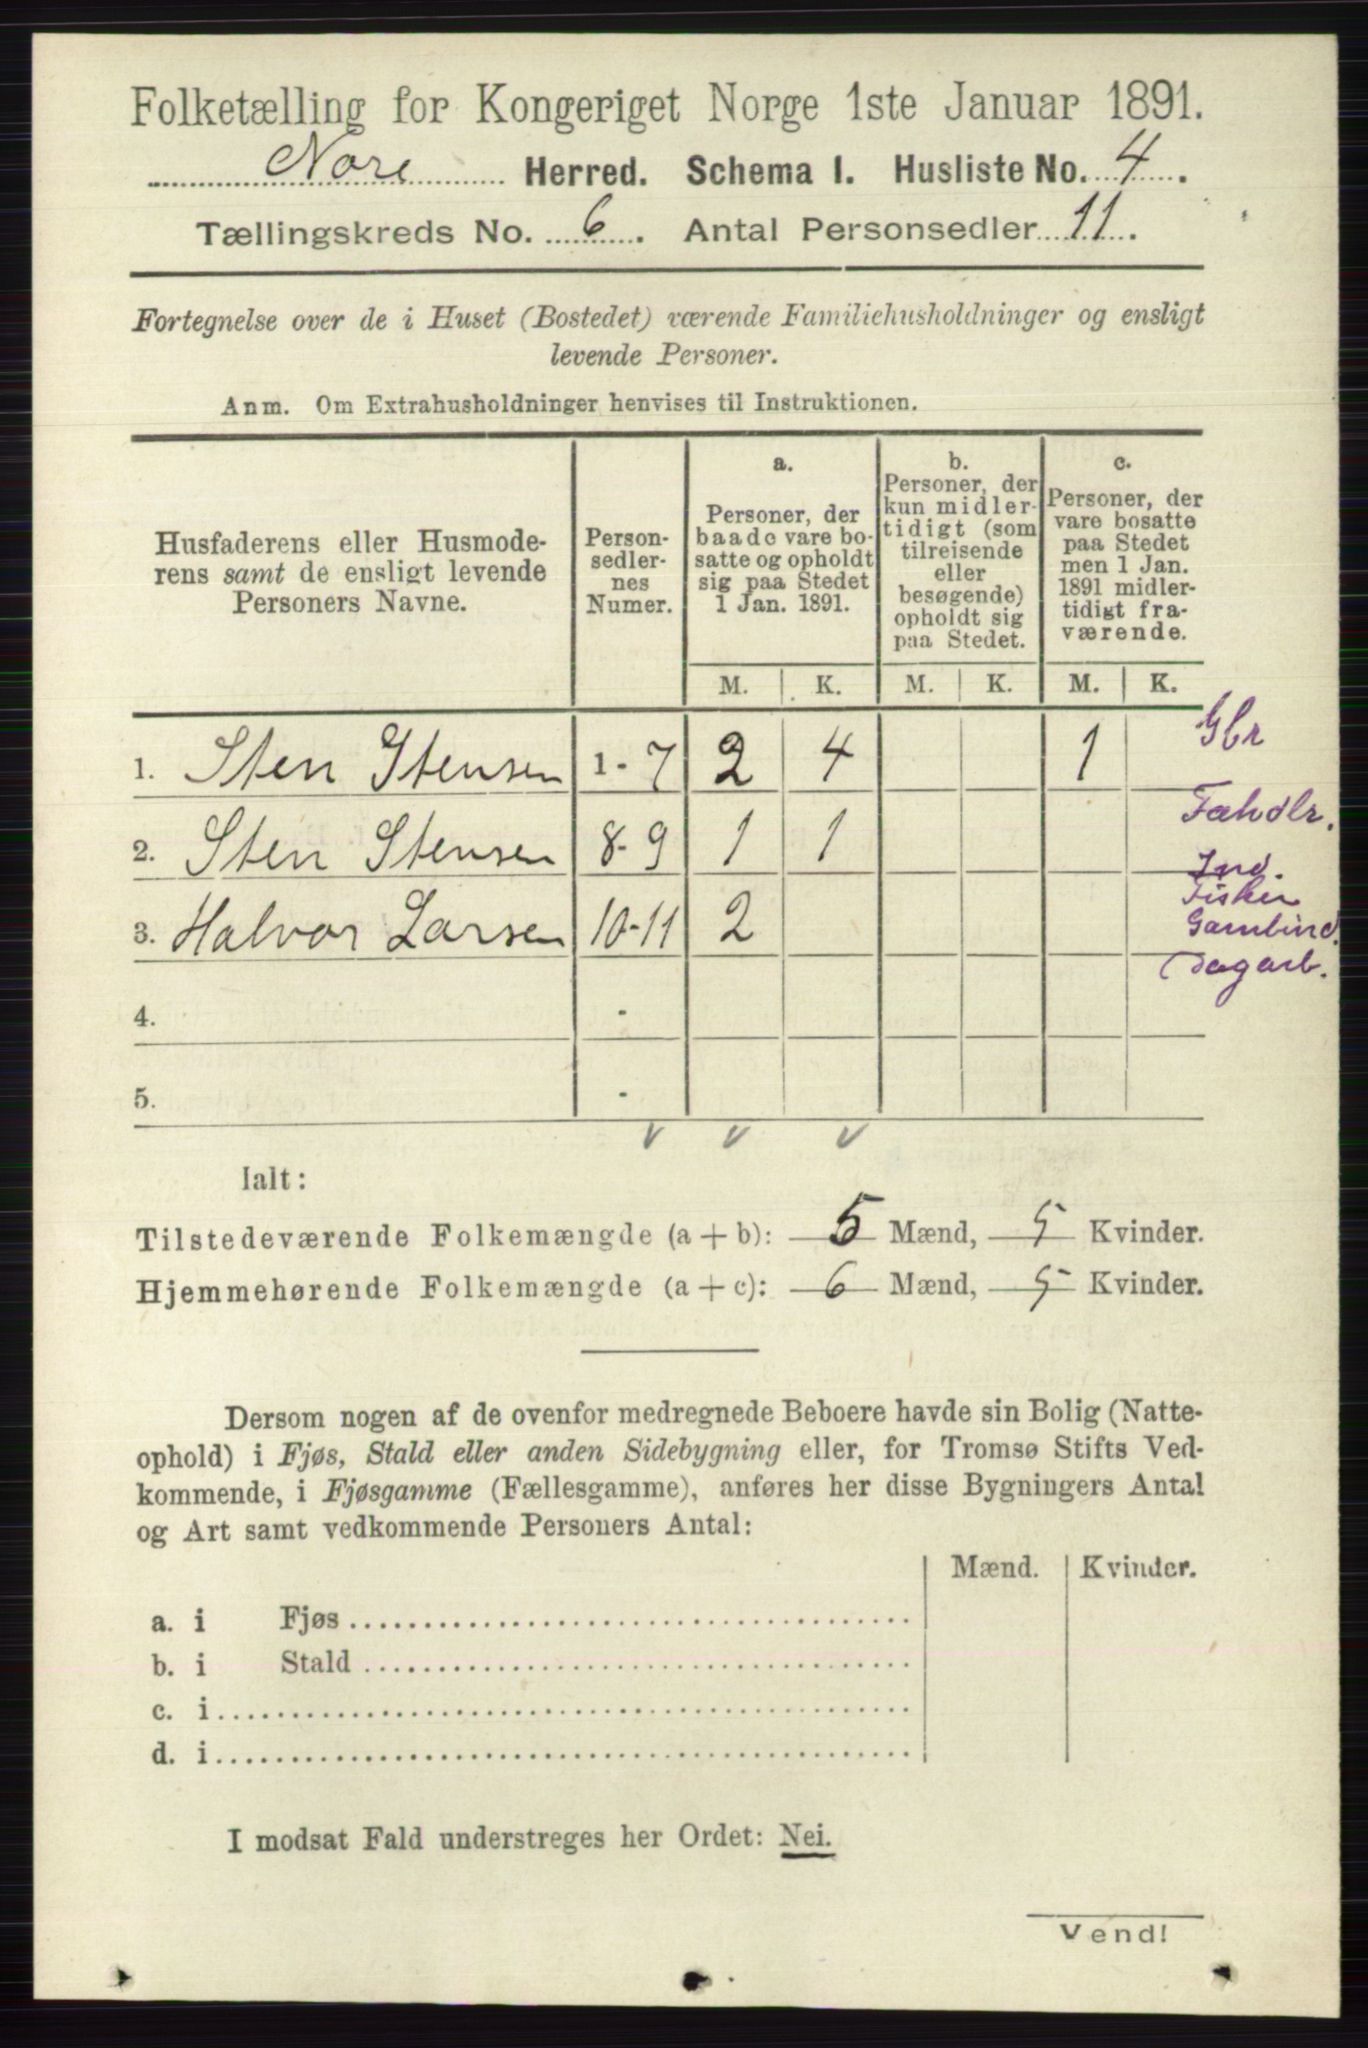 Folketælling for Kongeriget Norge 1ste Januar 1891.
Nore Herred. Schema I. Husliste No. 4.
Tællingskreds No. 6. Antal Personsedler 11.
Fortegnelse over de i Huset (Bostedet) værende Familiehusholdninger og ensligt
levende Personer.
Anm. Om Extrahusholdninger henvises til Instruktionen.
Husfaderens eller Husmode-
rens samt de ensligt levende
Personers Navne.
Person-
sedler-
nes
Numer.
a.
Personer, der
baade vare bo-
satte og opholdt
sig paa Stedet
1 Jan. 1891.
b.
Personer, der
kun midler-
tidigt (som
tilreisende
eller
besøgende)
opholdt sig
paa Stedet.
c.
Personer, der
vare bosatte
paa Stedet
men 1 Jan.
1891 midler-
tidigt fra-
værende.
M. K. M. K. M. K.
1. Sten Stensen 1-7 2 4 1 Gbr
2. Sten Stensen 8-9 1 1 Fæhdlr.
3. Halvor Larsen 10-11 2
Ind.
Fisker
Gambind.
Dagarb.
4. -
5. -
Ialt:
Tilstedeværende Folkemængde (a + b): 5 Mænd, 5 Kvinder.
Hjemmehørende Folkemængde (a + c): 6 Mænd, 5 Kvinder.
Dersom nogen af de ovenfor medregnede Beboere havde sin Bolig (Natte-
ophold) i Fjøs, Stald eller anden Sidebygning eller, for Tromsø Stifts Ved-
kommende, i Fjøsgamme (Fællesgamme), anføres her disse Bygningers Antal
og Art samt vedkommende Personers Antal:
Mænd. Kvinder.
a. i Fjøs
b. i Stald
c. i
d. i
I modsat Fald understreges her Ordet: Nei.
Vend!